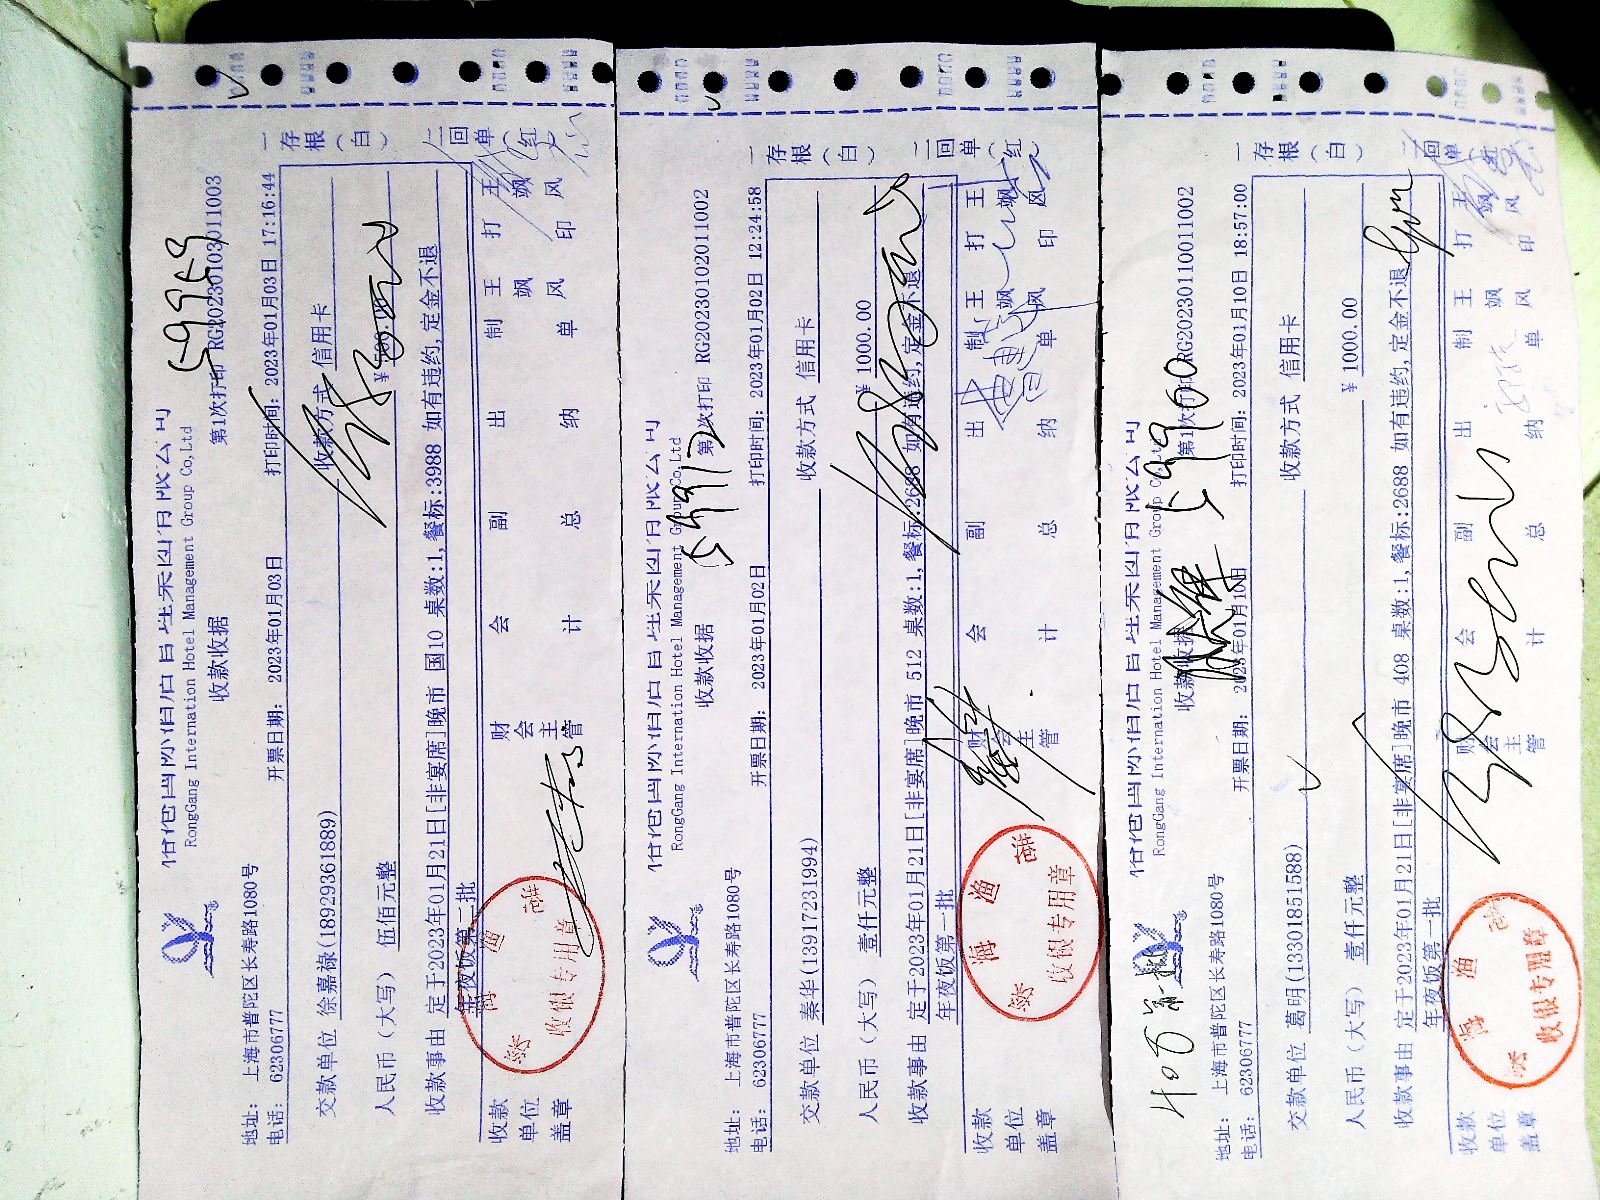 RongGang International Hotel Management Group Co,Ltd
收款收据
第1次打印 RG20230103011003
5959
地址: 上海市普陀区长寿路1080号
电话: 62306777
开票日期: 2023年01月03日
打印时间: 2023年01月03日 17:16:44
交款单位 徐嘉禄(18929361889)
收款方式 信用卡
人民币(大写) 伍佰元整
收款事由 定于2023年01月21日[非宴席]晚市 国10 桌数:1,餐标:3988 如有违约,定金不退
年夜饭第二批
收款单位盖章
财会主管
会计
副总
出纳
制单 王飒风
打印 王飒风
一存根(白)
二回单(红)
收银专用章
RongGang International Hotel Management Group Co,Ltd
收款收据
第1次打印 RG20230102011002
地址: 上海市普陀区长寿路1080号
电话: 62306777
开票日期: 2023年01月02日
打印时间: 2023年01月02日 12:24:58
交款单位 秦华(13917231994)
收款方式 信用卡
人民币(大写) 壹仟元整
¥ 1000.00
收款事由 定于2023年01月21日[非宴席]晚市 512 桌数:1,餐标:2688 如有违约,定金不退
年夜饭第一批
收款单位盖章
财会主管
会计
副总
出纳
制单 王飒风
打印 王飒风
一存根(白)
二回单(红)
收银专用章
RongGang International Hotel Management Group Co,Ltd
收款收据
第1次打印 RG20230110011002
地址: 上海市普陀区长寿路1080号
电话: 62306777
开票日期: 2023年01月10日
打印时间: 2023年01月10日 18:57:00
交款单位 葛明(13301851588)
收款方式 信用卡
人民币(大写) 壹仟元整
¥ 1000.00
收款事由 定于2023年01月21日[非宴席]晚市 408 桌数:1,餐标:2688 如有违约,定金不退
年夜饭第一批
收款单位盖章
财会主管
会计
副总
出纳
制单 王飒风
打印 王飒风
一存根(白)
二回单(红)
收银专用章